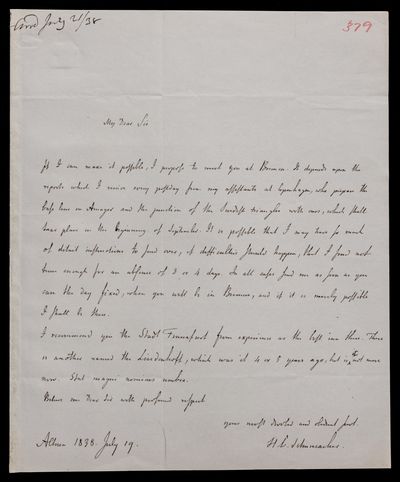 July 21/38
379
My Dear Sir
If I can make it possible, I propose to meet you at Bremen. It depends upon the
reports which I receive every postday from my assistants at Copenhagen, who prepare the
base line on Amager and the junction of the Swedish triangles with ours, which shall
take place in the beginning of September. It is possible that I may have so much
of detail instructions to send over, if difficulties should happen, that I find not
time enough for an absence of 3 or 4 days. In all cases send me as soon as you
can the day fixed, when you will be in Bremen, and if it is merely possible
I shall be there.
I recommend you the Stadt Francfort from experience as the best inn there. There
is another named the Lindenhoff, which was it 4 or 5 years ago, but is not more
now. Stat magni nominis umbra.
Believe me Dear Sir with profound respect
yours most devoted and obedient servt.
Altona 1838. July 19. H. C. Schumacher.